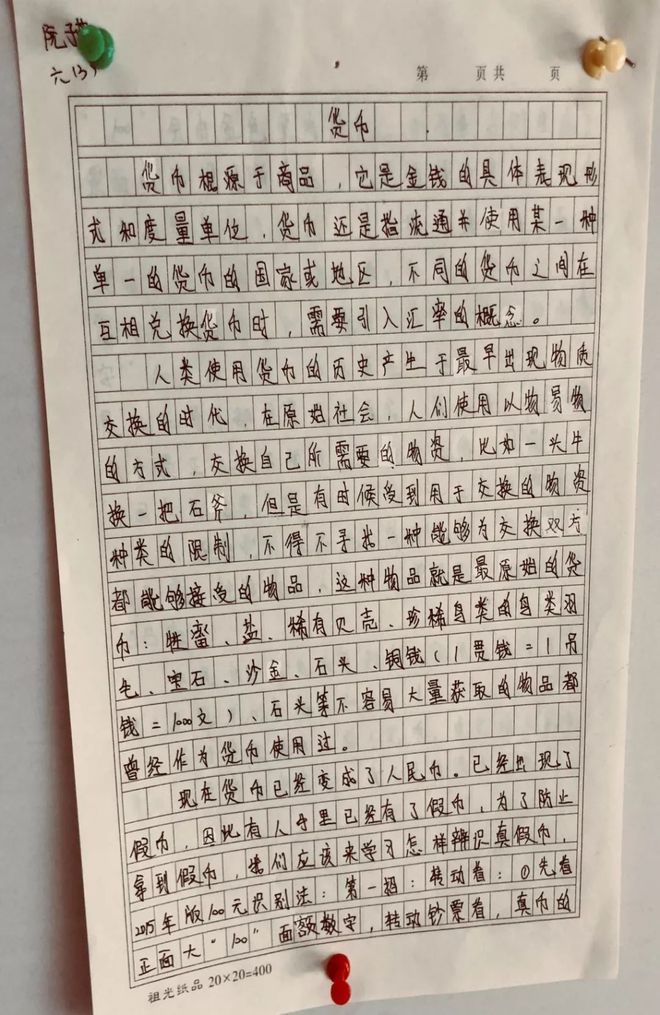 阮子
六(3)
第 页共 页
货币
货币根源于商品，它是金钱的具体表现形
式和度量单位，货币还是指流通并使用某一种
单一的货币的国家或地区，不同的货币之间在
互相兑换货币时，需要引入汇率的概念。
人类使用货币的历史产生于最早出现物质
交换的时代，在原始社会，人们使用以物易物
的方式，交换自己所需要的物资，比如一头牛
换一把石斧，但是有时候受到用于交换的物资
种类的限制，不得不寻找一种能够为交换双方
都能够接受的物品，这种物品就是最原始的货
币：牲畜、盐、稀有贝壳、珍稀鸟类的鸟类羽
毛、宝石、沙金、石头、铜钱（1贯钱=1吊
钱=1000文）、石头等不容易大量获取的物品都
曾经作为货币使用过。
现在货币已经变成了人民币。已经出现了
假币，因此有人手里已经有了假币，为了防止
拿到假币，我们应该来学习怎样辨识真假币，
2015年版100元识别法：第一招：转动看：①先看
正面大“100”面额数字，转动钞票看，真币的
祖光纸品 20×20=400